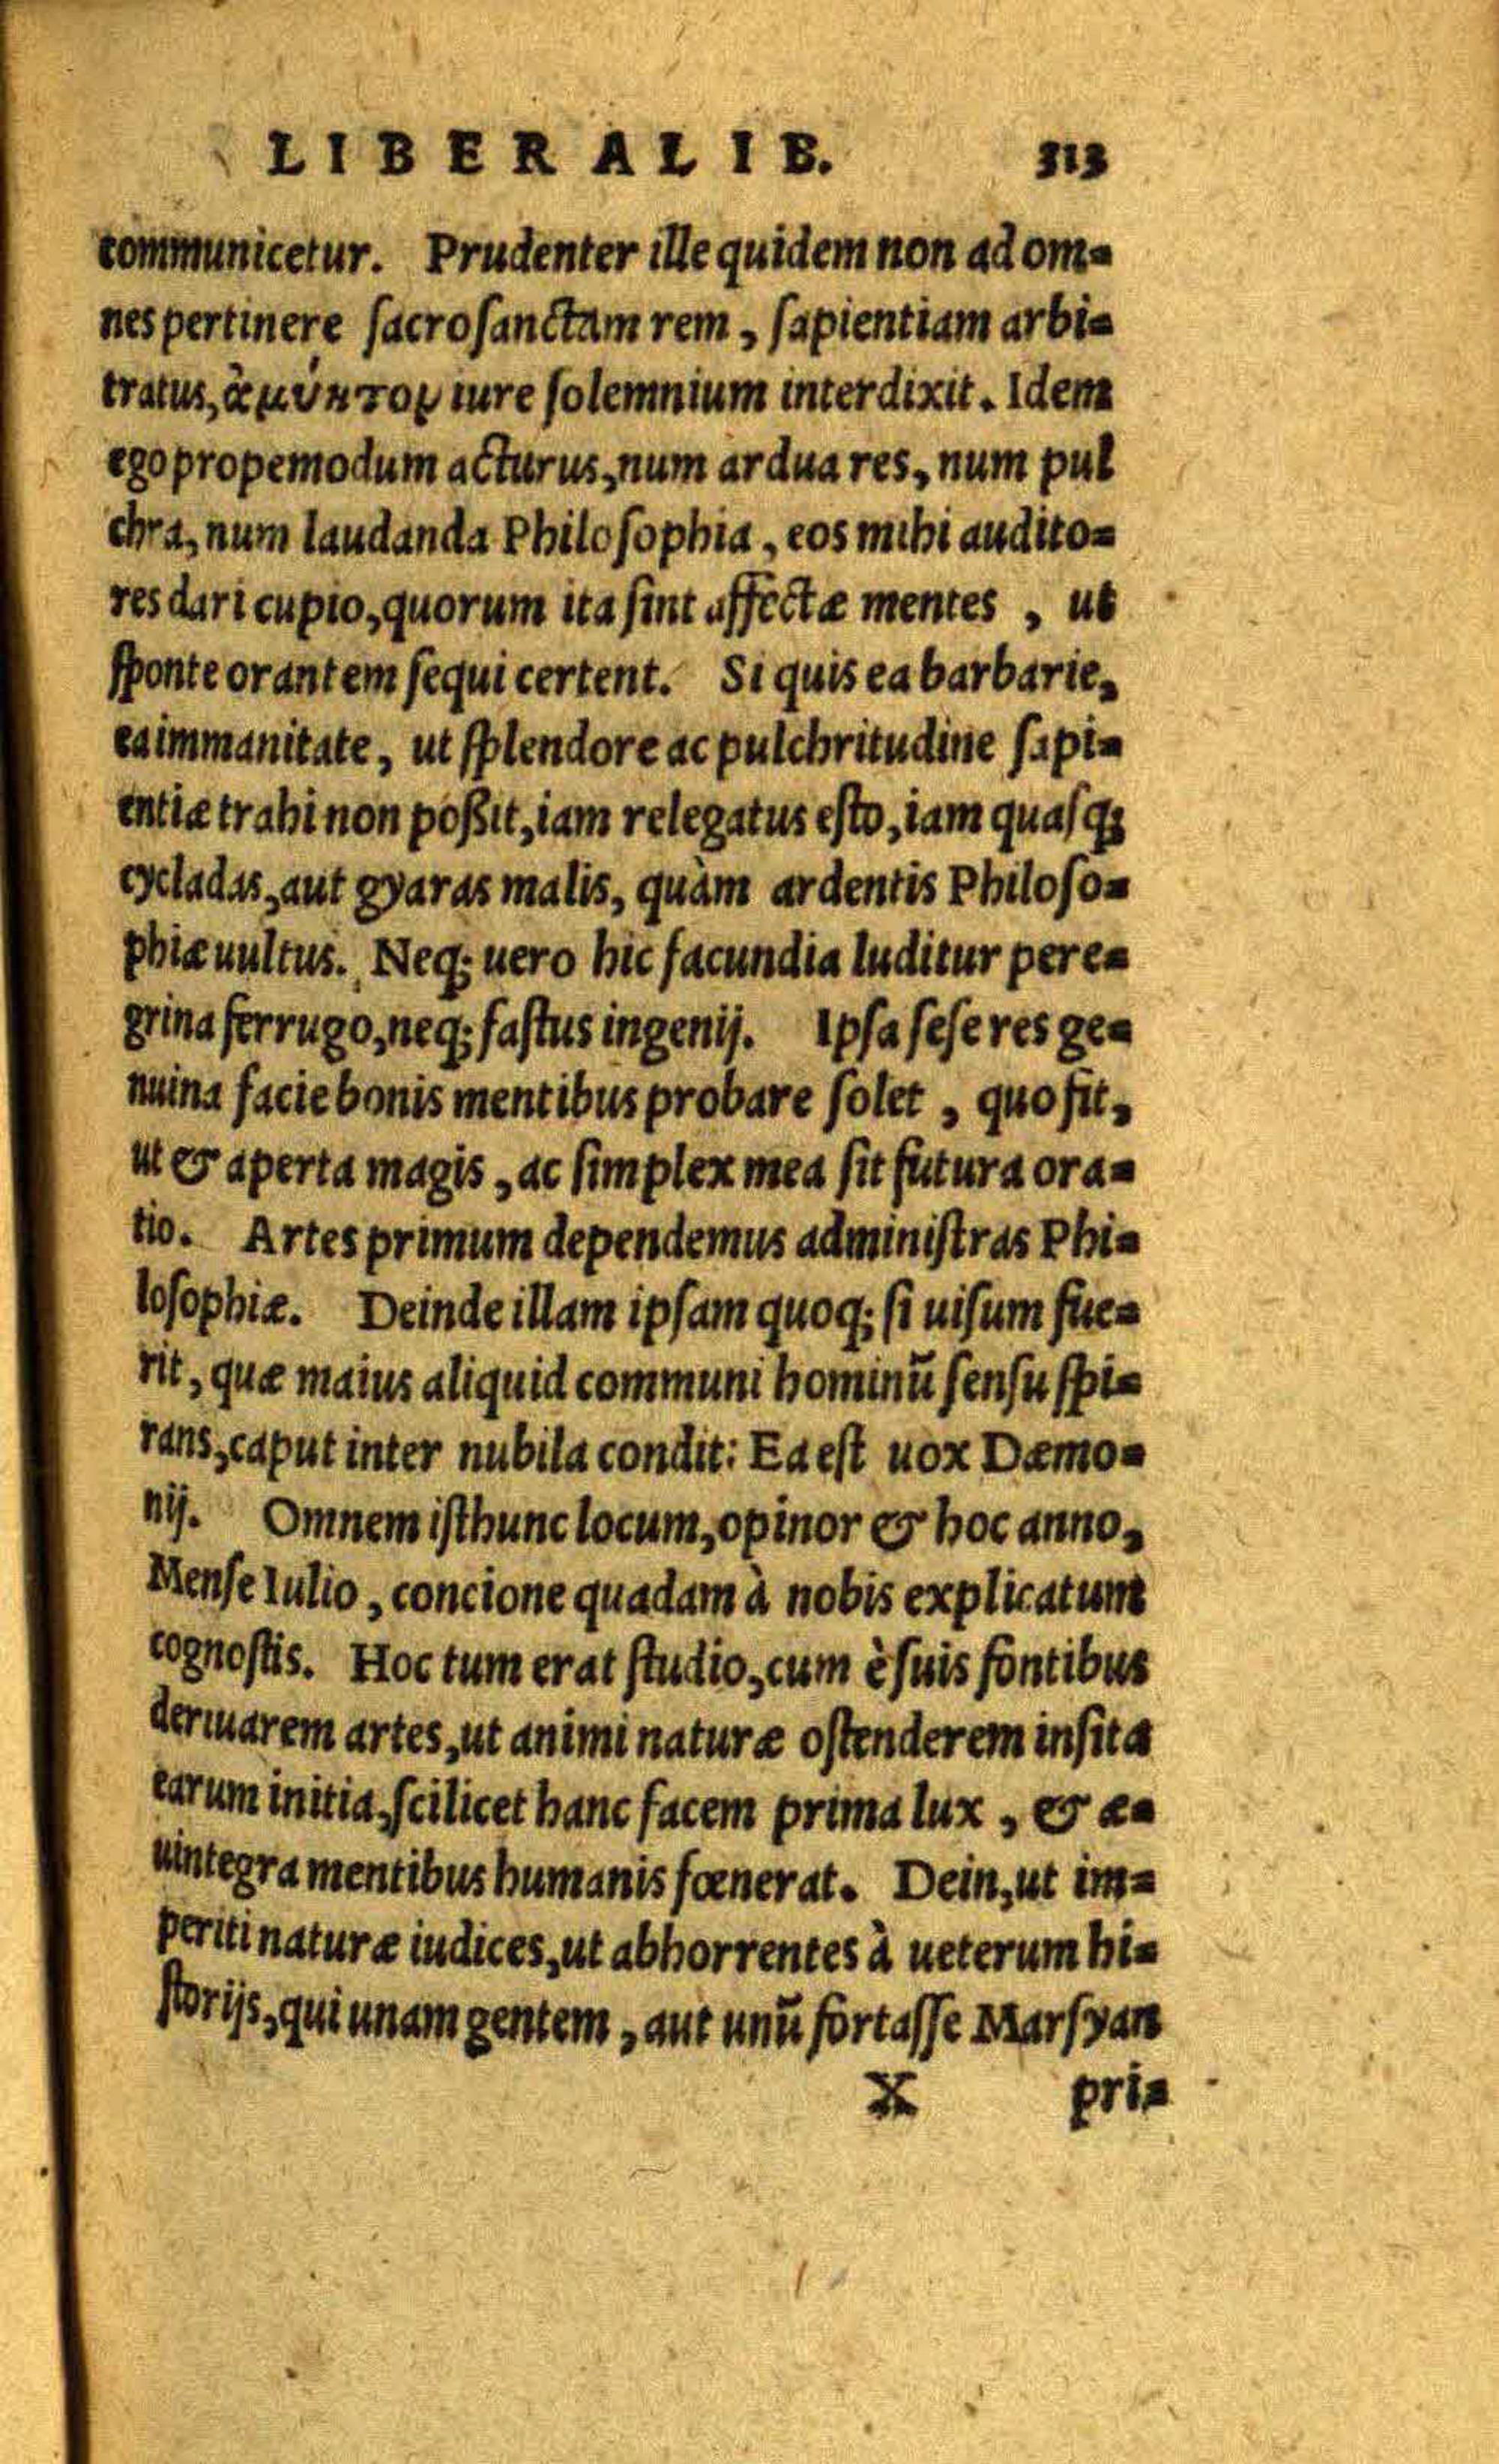 LIBERALIB. 313
communicetur. Prudenter ille quidem non ad om-
nes pertinere sacrosanctam rem, sapientiam arbi-
tratus, ἀμύητον iure solemnium interdixit. Idem
ego propemodum acturus, num ardua res, num pul
chra, num laudanda Philosophia, eos mihi audito-
res dari cupio, quorum ita sint affectæ mentes, ut
sponte orantem sequi certent. Si quis ea barbarie,
ea immanitate, ut splendore ac pulchritudine sapi-
entiæ trahi non poßit, iam relegatus esto, iam quasq;
cycladas, aut gyaras malis, quàm ardentis Philoso-
phiæ uultus. Neq; uero hic facundia luditur pere-
grina ferrugo, neq; fastus ingenij. Ipsa sese res ge-
nuina facie bonis mentibus probare solet, quo fit,
ut & aperta magis, ac simplex mea sit futura ora-
tio. Artes primum dependemus administras Phi-
losophiæ. Deinde illam ipsam quoq; si uisum fue-
rit, quæ maius aliquid communi hominū sensu spi-
rans, caput inter nubila condit: Ea est uox Dæmo-
nij. Omnem isthunc locum, opinor & hoc anno,
Mense Iulio, concione quadam à nobis explicatum
cognostis. Hoc tum erat studio, cum è suis fontibus
deriuarem artes, ut animi naturæ ostenderem insita
earum initia, scilicet hanc facem prima lux, & æ-
uintegra mentibus humanis fœnerat. Dein, ut im-
periti naturæ iudices, ut abhorrentes à ueterum hi-
storijs, qui unam gentem, aut unū fortasse Marsyan
X pri-